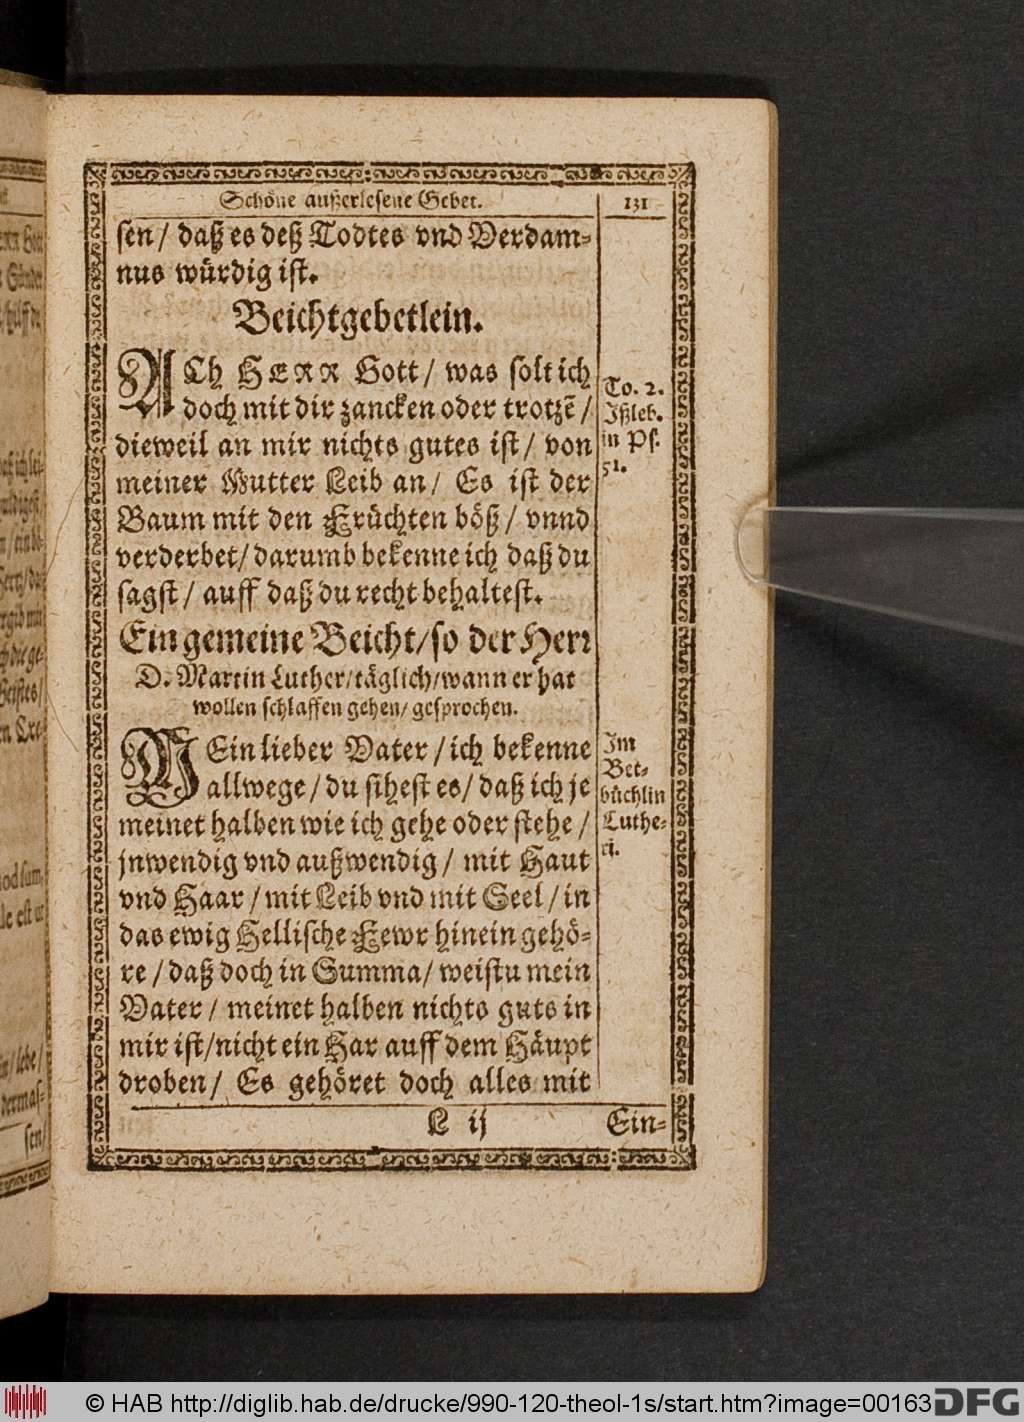 Schöne außerlesene Gebet.
131
sen / daß es deß Todtes vnd Verdam-
nus würdig ist.
Beichtgebetlein.
ACh HERR Gott / was solt ich
doch mit dir zancken oder trotzẽ /
dieweil an mir nichts gutes ist / von
meiner Mutter Leib an / Es ist der
Baum mit den Früchten böß / vnnd
verderbet / darumb bekenne ich daß du
sagst / auff daß du recht behaltest.
To. 2.
Jßleb.
in Ps.
51.
Ein gemeine Beicht / so der Herr
D. Martin Luther / täglich / wann er hat
wollen schlaffen gehen / gesprochen.
MEin lieber Vater / ich bekenne
allwege / du sihest es / daß ich je
meinet halben wie ich gehe oder stehe /
jnwendig vnd außwendig / mit Haut
vnd Haar / mit Leib vnd mit Seel / in
das ewig Hellische Fewr hinein gehö-
re / daß doch in Summa / weistu mein
Vater / meinet halben nichts guts in
mir ist / nicht ein Har auff dem Häupt
droben / Es gehöret doch alles mit
Jm
Bet-
büchlin
Luthe-
ri.
L ij
Ein-
© HAB http://diglib.hab.de/drucke/990-120-theol-1s/start.htm?image=00163
DFG